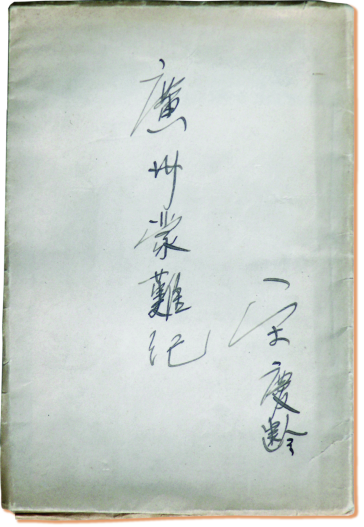 廣州蒙難记
宋慶齡